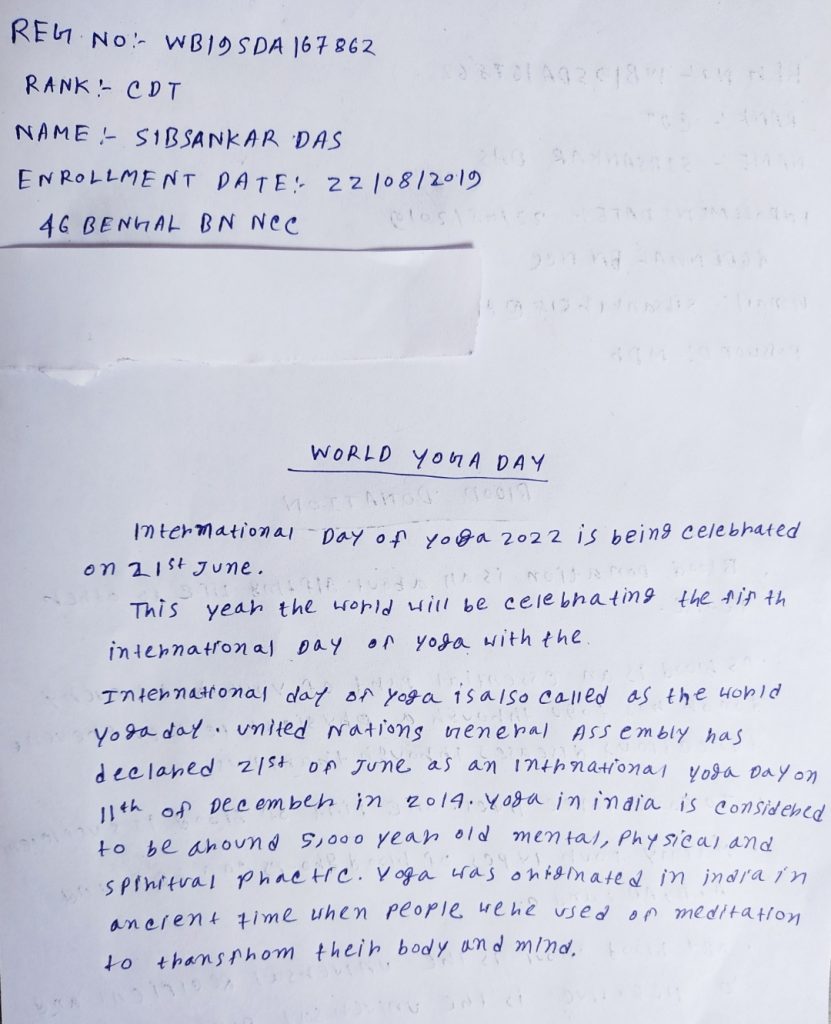 REG NO:- WB19SDA167862
RANK:- CDT
NAME:- SIBSANKAR DAS
ENROLLMENT DATE:- 22/08/2019
46 BENGAL BN NCC
WORLD YOGA DAY
International Day of yoga 2022 is being celebrated
on 21st June.
This year the world will be celebrating the fifth
international Day of yoga with the
International day of yoga is also called as the world
yoga day. united Nations General Assembly has
declared 21st of June as an intrnational yoga Day on
11th of December in 2014. yoga in india is considered
to be around 5,000 year old mental, Physical and
spiritual Practic. Yoga was originated in india in
ancient time when people were used of meditation
to transfrom their body and mind.